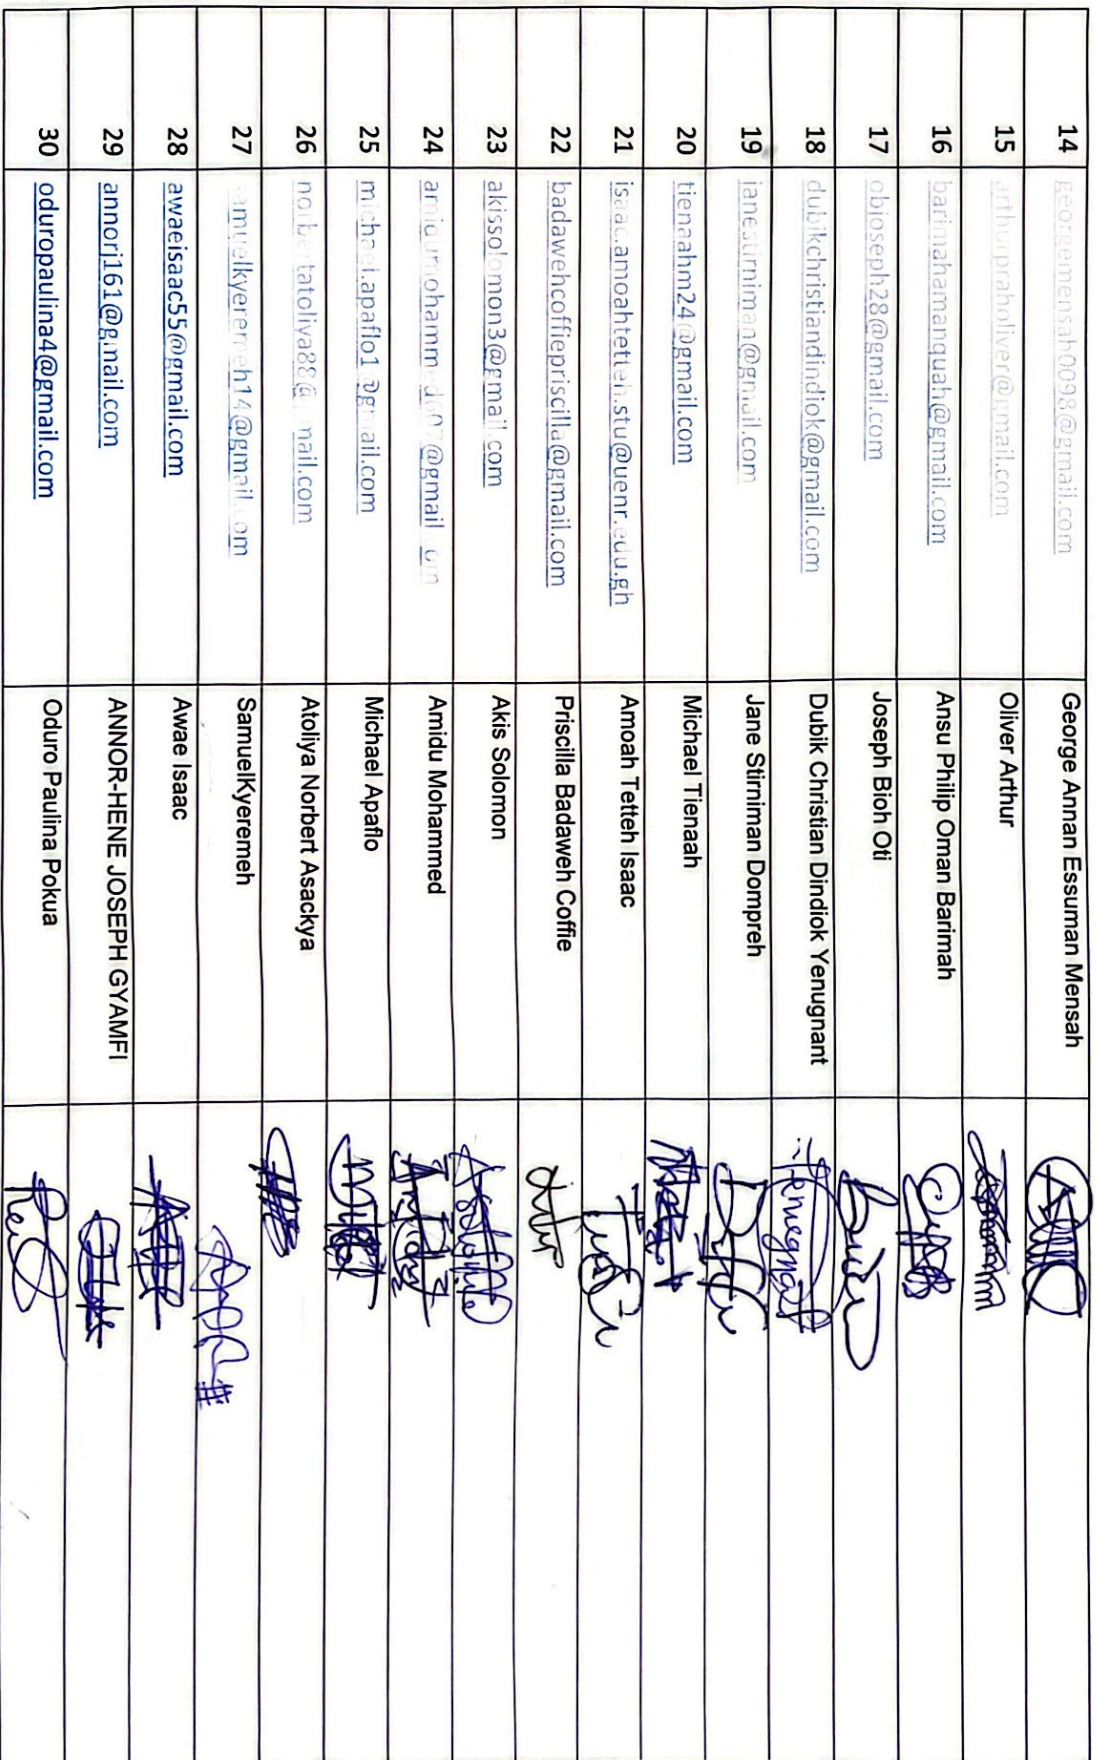 14 georgemensah0098@gmail.com George Annan Essuman Mensah
15 arthurpraholiver@gmail.com Oliver Arthur
16 barimahamanquah@gmail.com Ansu Philip Oman Barimah
17 objoseph28@gmail.com Joseph Bioh Oti
18 dubikchristiandindiok@gmail.com Dubik Christian Dindiok Yenugnant
19 janestirniman@gmail.com Jane Stirniman Dompreh
20 tienaahm24@gmail.com Michael Tienaah
21 isaac.amoahtetteh.stu@uenr.edu.gh Amoah Tetteh Isaac
22 badawehcoffiepriscilla@gmail.com Priscilla Badaweh Coffie
23 akissolomon3@gmail.com Akis Solomon
24 Amidu Mohammed
25 michael.apaflo1@gmail.com Michael Apaflo
26 norbertatoliya88@gmail.com Atoliya Norbert Asackya
27 samuelkyeremeh14@gmail.com SamuelKyeremeh
28 awaeisaac55@gmail.com Awae Isaac
29 annorj161@gmail.com ANNOR-HENE JOSEPH GYAMFI
30 oduropaulina4@gmail.com Oduro Paulina Pokua